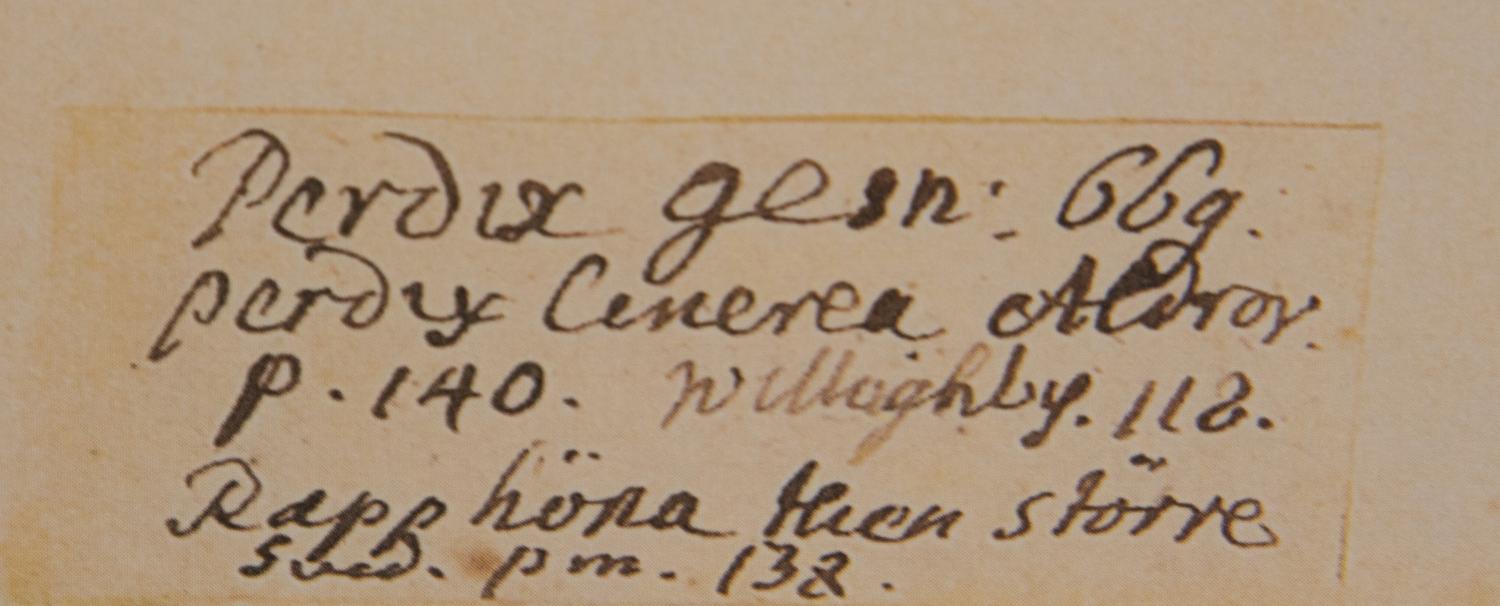 Perdix gesn: 669.
perdix Cinerea Aldrov.
p. 140. Willughby. 118.
Rapp höna then större
sued. pm. 138.